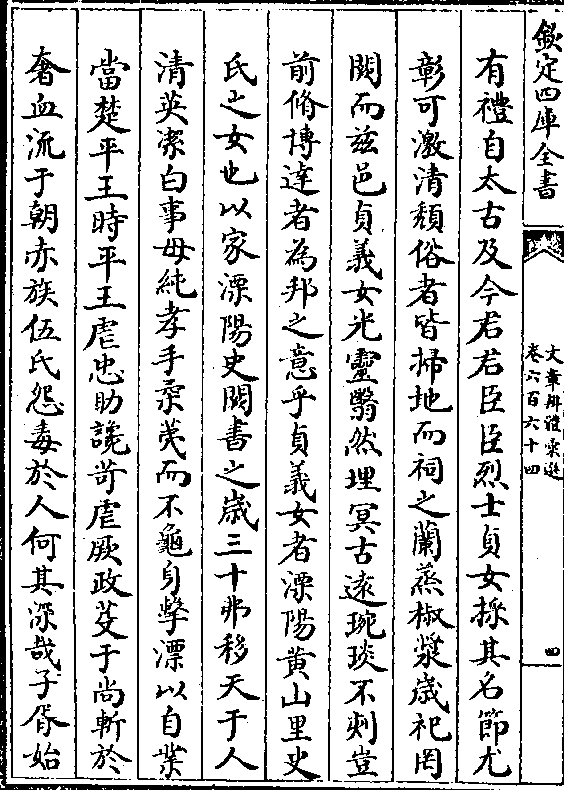 欽定四庫全書
文章辨體彙選
卷六百六十四
四
有禮自太古及今君君臣臣烈士貞女採其名節尤
彰可激清頹俗者皆掃地而祠之蘭蒸椒漿歲祀罔
闕而茲邑貞義女光靈翳然埋冥古逺琬琰不刻豈
前脩博達者為邦之意乎貞義女者溧陽黄山里史
氏之女也以家溧陽史闕書之歲三十弗移天于人
清英潔白事母純孝手柔荑而不龜身擊漂以自業
當楚平王時平王虐忠助讒苛虐厥政芟于尚斬於
奢血流于朝赤族伍氏怨毒於人何其深哉子胥始